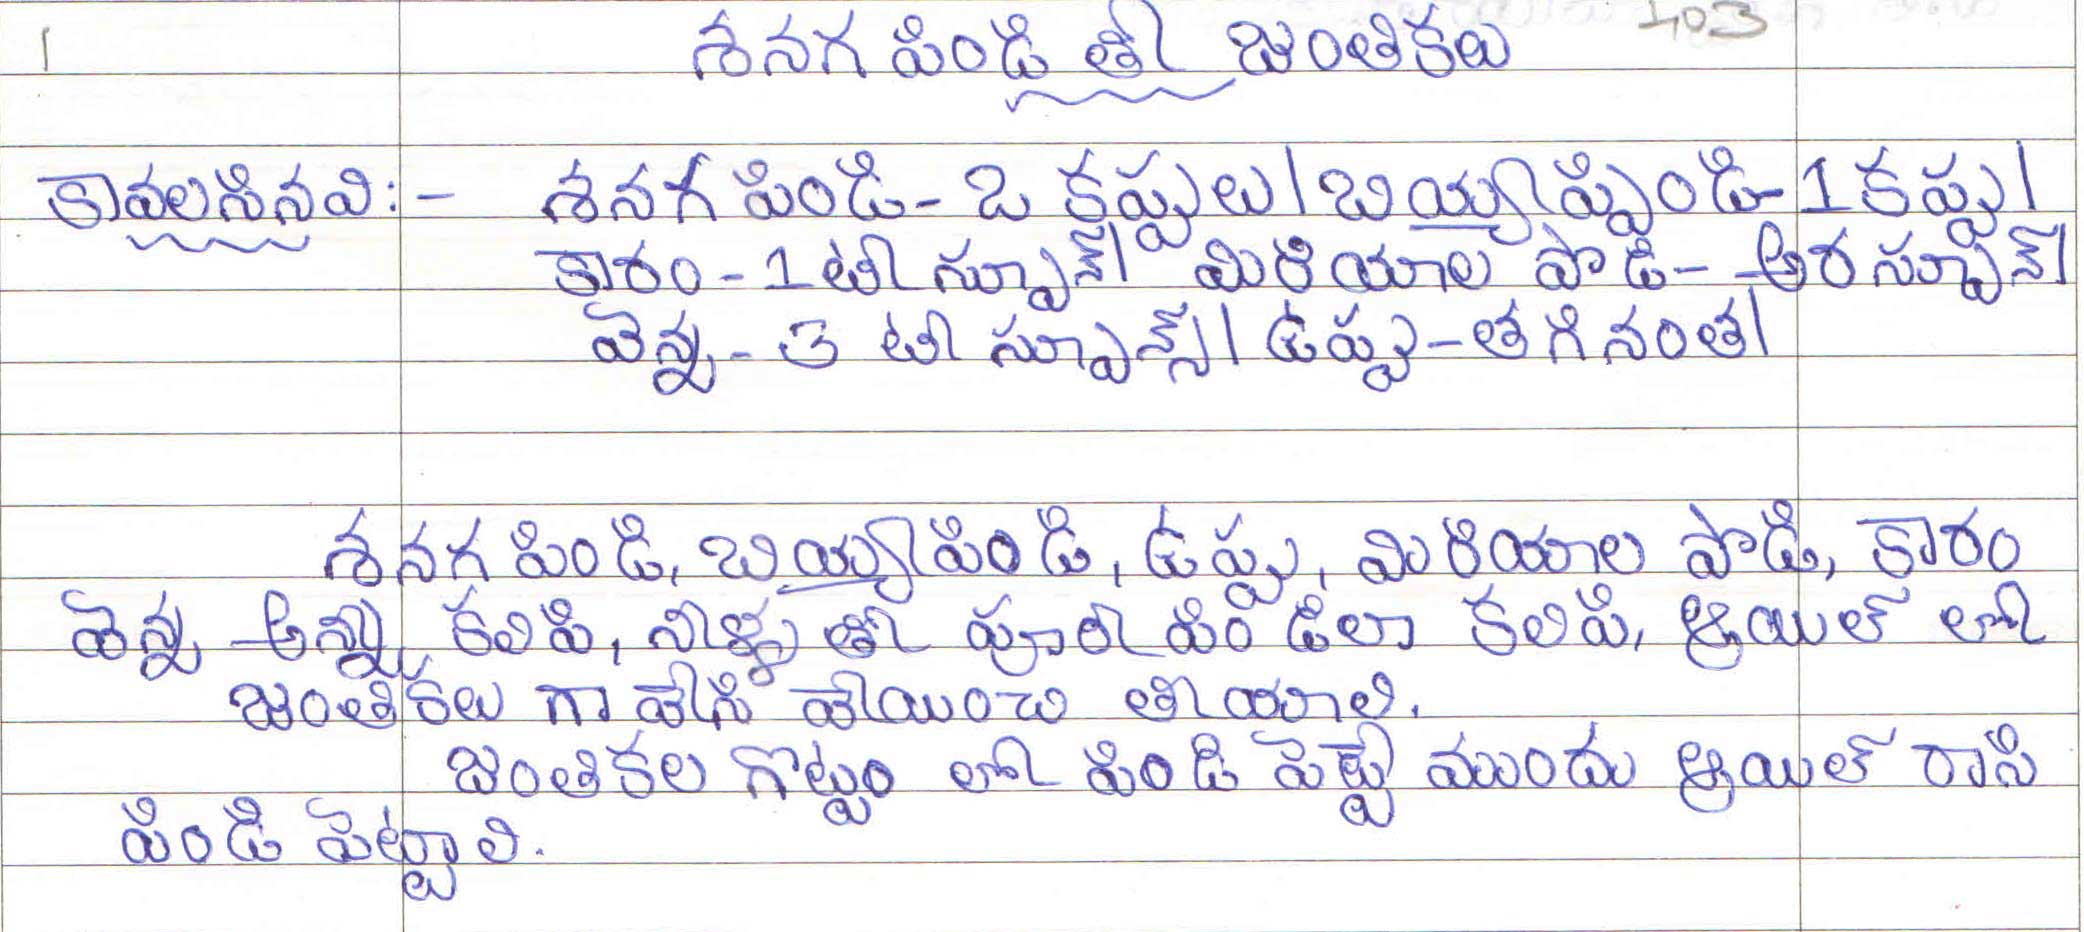 1 శనగ పిండి తో జంతికలు 103
కావలసినవి :- శనగ పిండి - 2 కప్పులు / బియ్యప్పిండి - 1 కప్పు /
కారం - 1 టీ స్పూన్ / మిరియాల పొడి - అర స్పూన్ /
వెన్న - 3 టీ స్పూన్స్ / ఉప్పు - తగినంత /
శనగ పిండి, బియ్యపిండి, ఉప్పు, మిరియాల పొడి, కారం
వెన్న అన్నీ కలిపి, నీళ్ళ తో పూరీ పిండిలా కలిపి, ఆయిల్ లో
జంతికలు గా వేసి వేయించి తీయాలి.
జంతికల గొట్టం లో పిండి పెట్టే ముందు ఆయిల్ రాసి
పిండి పెట్టాలి.